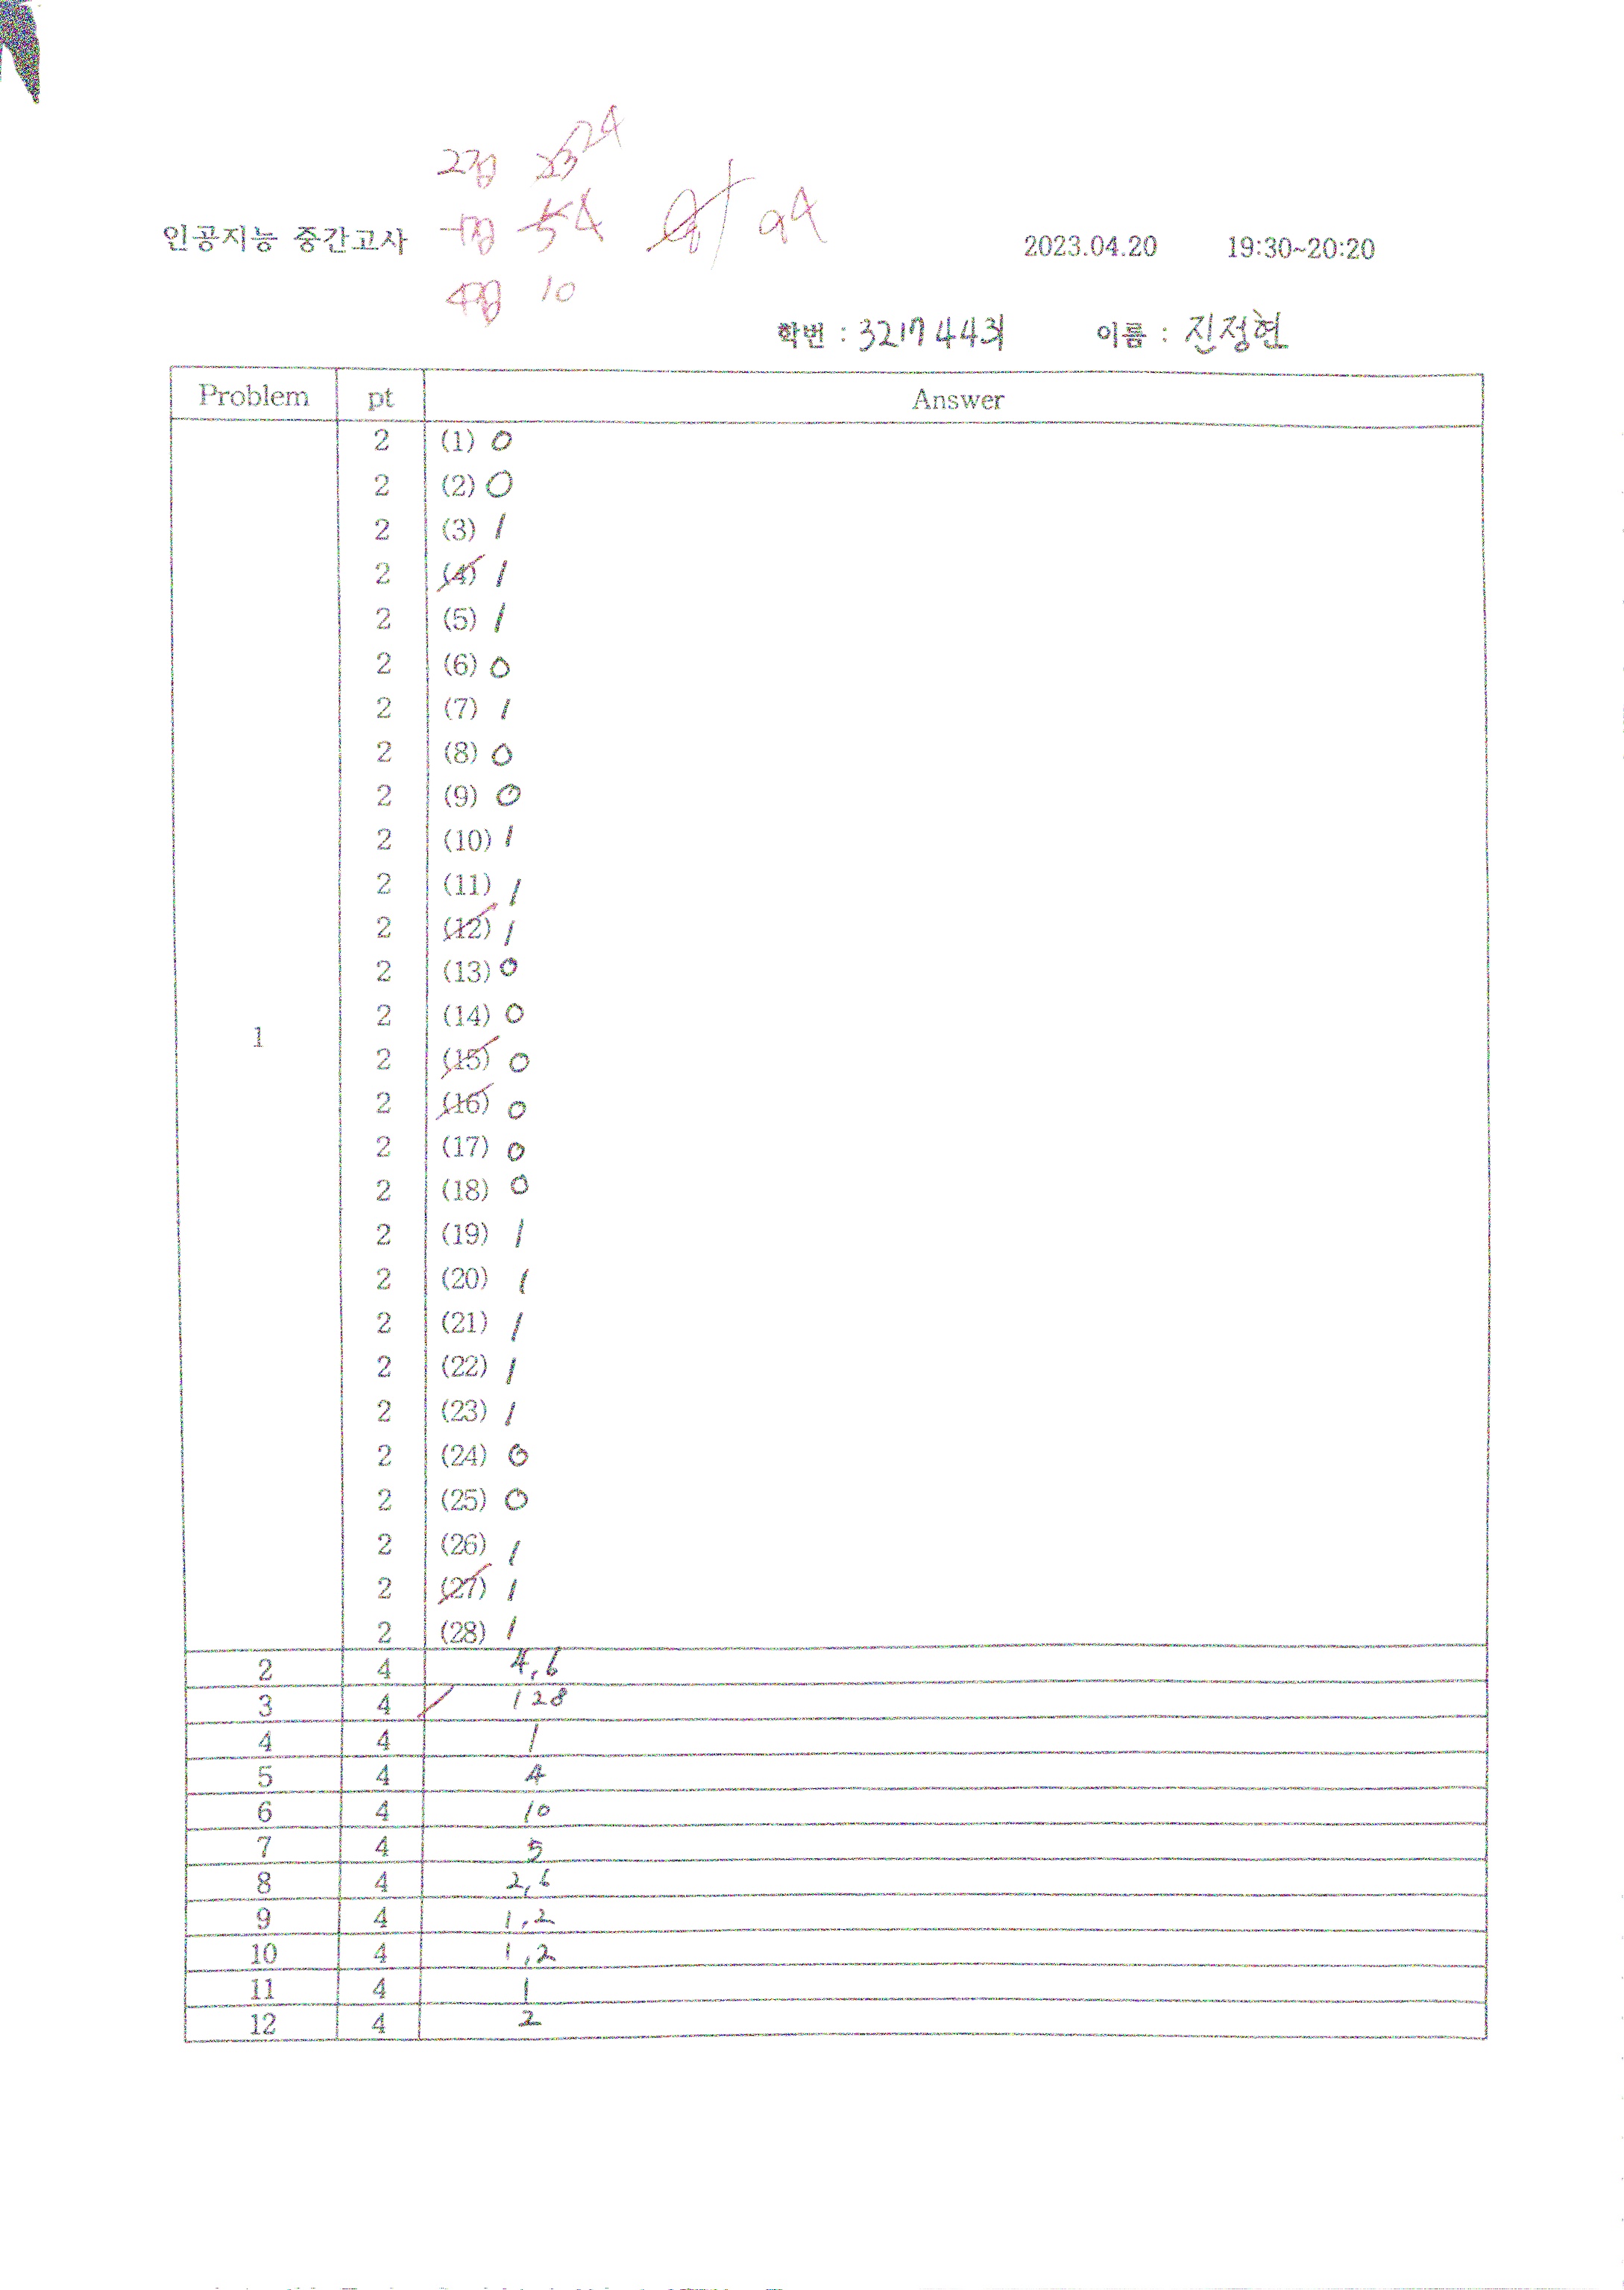 2점 23 24
인공지능 중간고사 -1점 5 4 94 2023.04.20 19:30~20:20
4점 10
학번 : 이름 : 진정현
Problem pt Answer
2 (1) 0
2 (2) 0
2 (3) 1
2 (4) 1
2 (5) 1
2 (6) 0
2 (7) 1
2 (8) 0
2 (9) 0
2 (10) 1
2 (11) 1
2 (12) 1
2 (13) 0
2 (14) 0
1
2 (15) 0
2 (16) 0
2 (17) 0
2 (18) 0
2 (19) 1
2 (20) 1
2 (21) 1
2 (22) 1
2 (23) 1
2 (24) 0
2 (25) 0
2 (26) 1
2 (27) 1
2 (28) 1
2 4 4,6
3 4 128
4 4 1
5 4 4
6 4 10
7 4 5
8 4 2,6
9 4 1,2
10 4 1,2
11 4 1
12 4 2